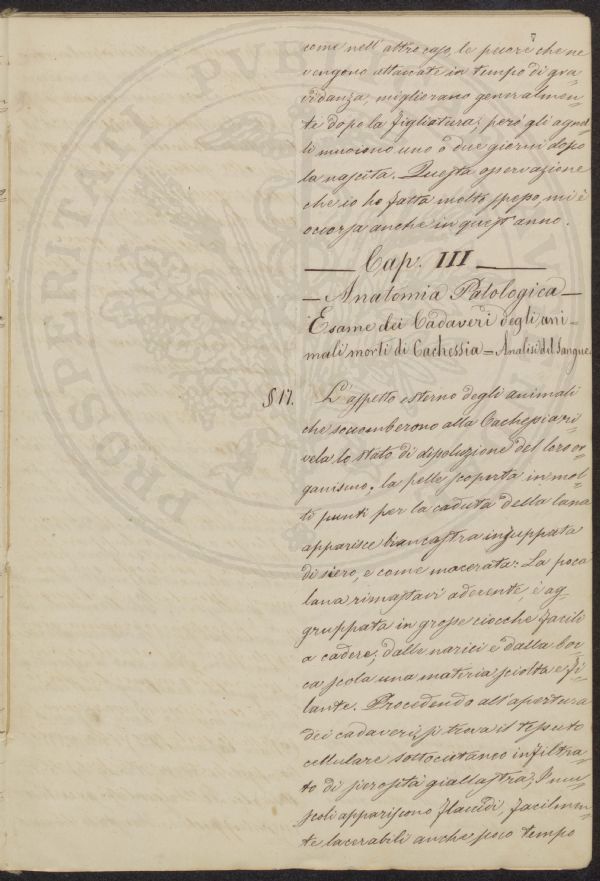 7
come nell'altro caso, le pecore che ne
vengono attaccate in tempo di gra-
vidanza, migliorano generalmen-
te dopo la figliatura; però gli agnel-
li muoiono uno o due giorni dopo
la nascita. Questa osservazione
che io ho fatta molto spesso, mi è
occorsa anche in quest'anno.
Cap. III
— Anatomia Patologica —
Esame dei Cadaveri degli ani-
mali morti di Cachessia = Analisi del Sangue.
§ 17. L'aspetto esterno degli animali
che soccomberono alla Cachessia ri-
vela lo stato di dissoluzione del loro or-
ganismo; la pelle scoperta in mol-
ti punti per la caduta della lana
apparisce biancastra inzuppata
di siero, e come macerata: La poca
lana rimastavi aderente, è ag-
gruppata in grosse ciocche facili
a cadere; dalle narici e dalla boc-
ca scola una materia sciolta e fi-
lante. Procedendo all'apertura
dei cadaveri, si trova il tessuto
cellulare sottocutaneo infiltra-
to di sierosità giallastra; I mu-
scoli appariscono flaccidi, facilmen-
te lacerabili anche poco tempo
PROSPERITATI PVBLI